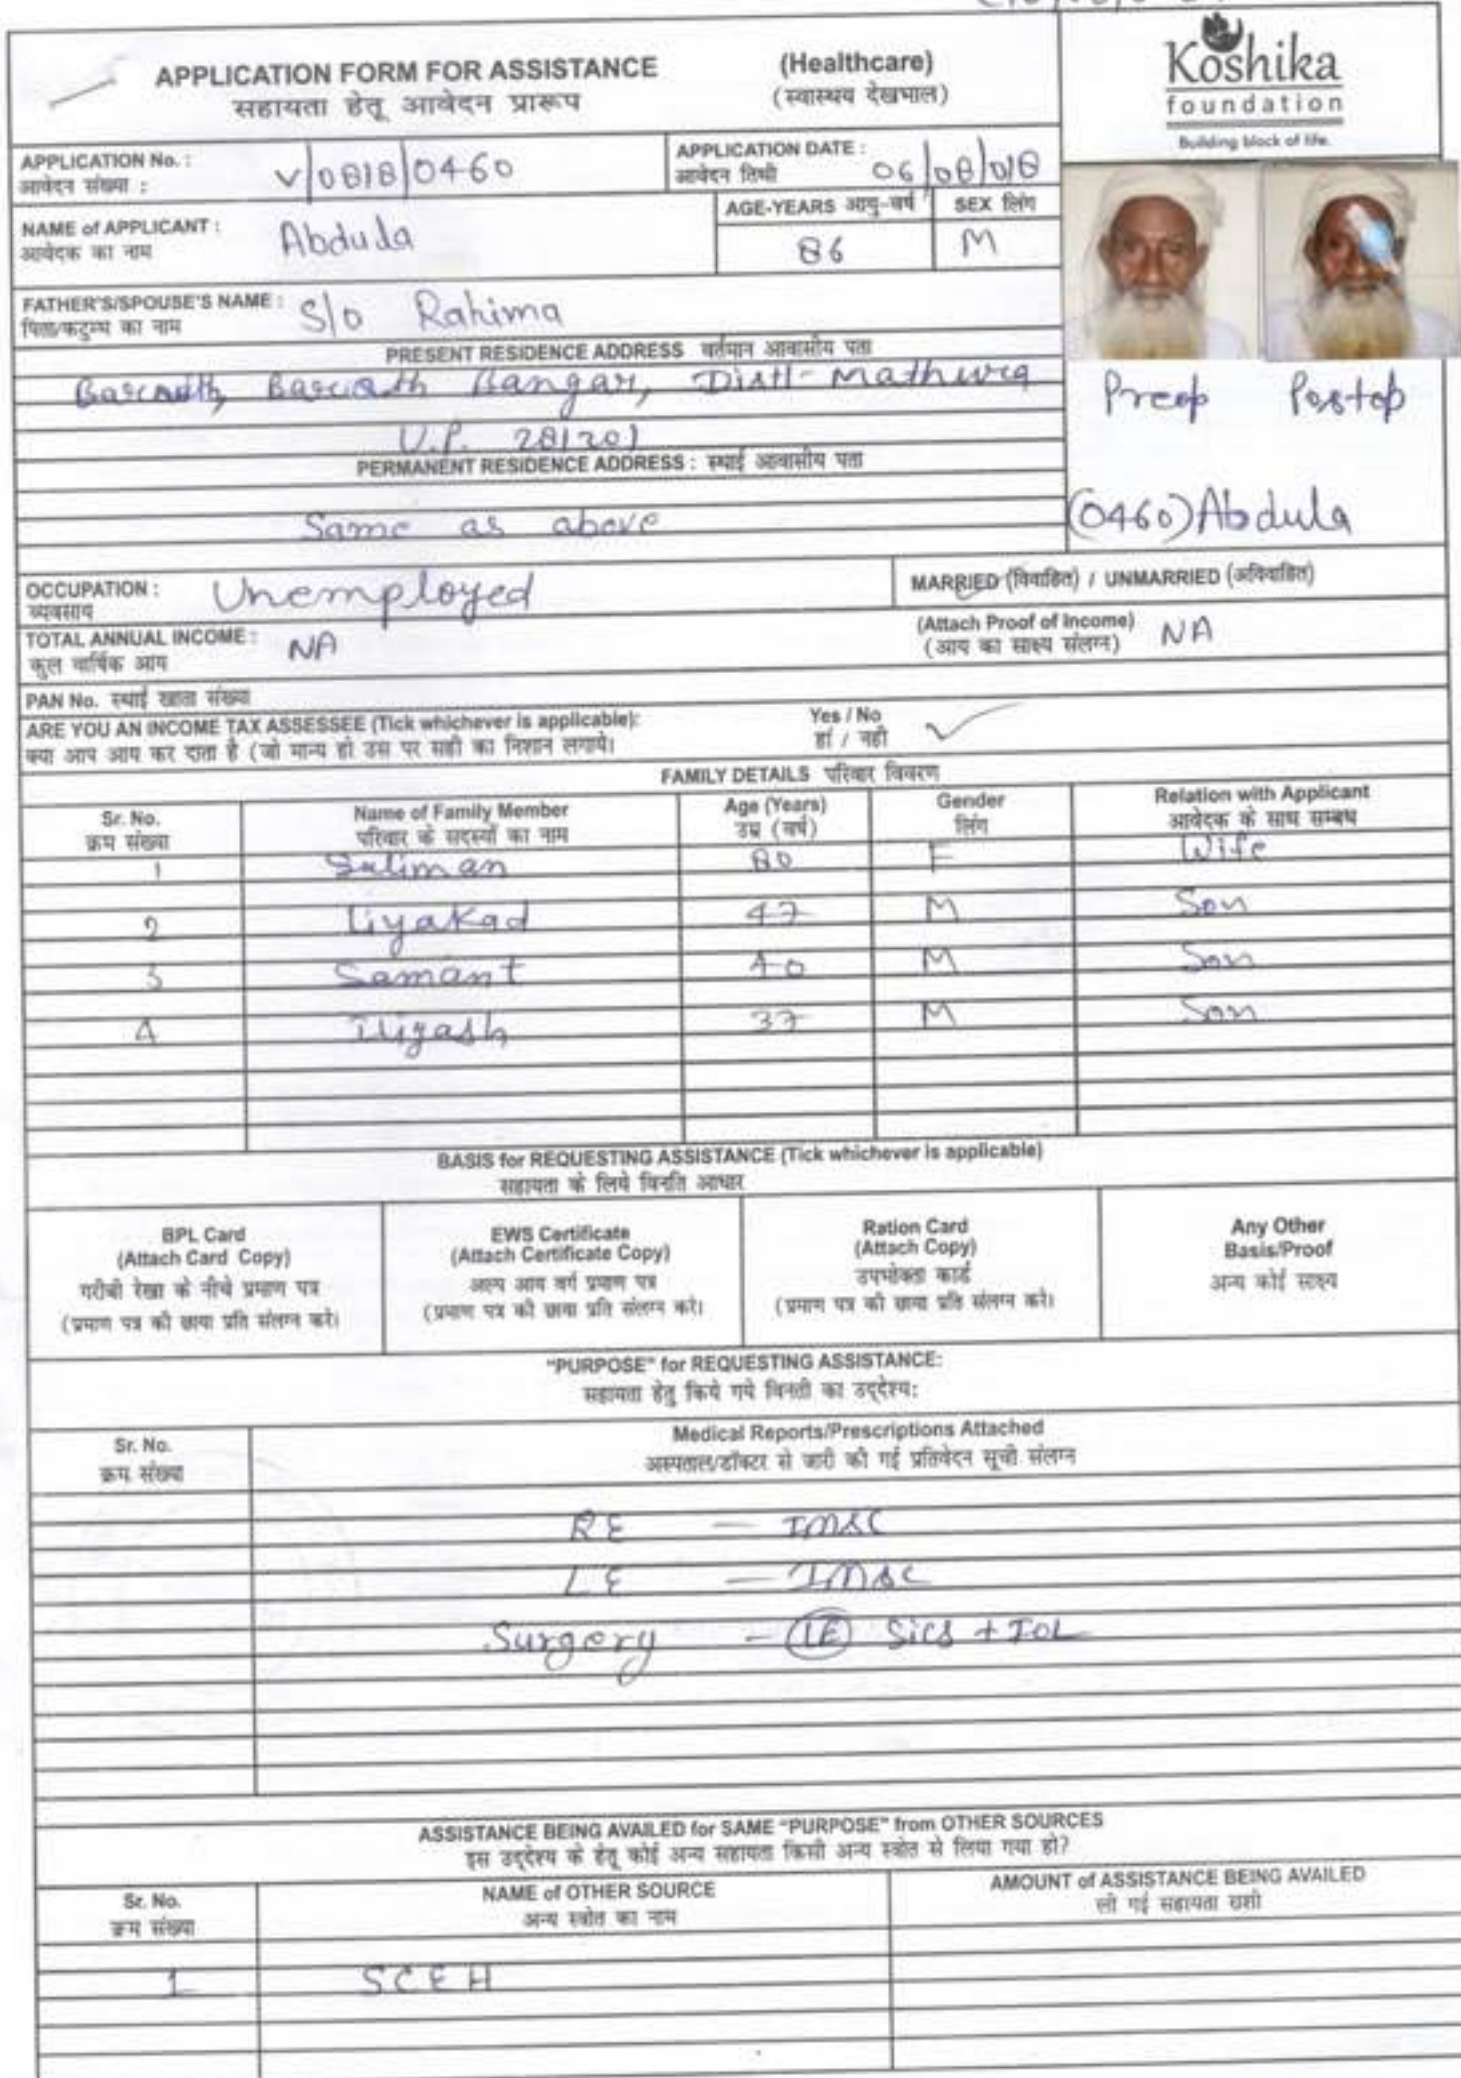 APPLICATION FORM FOR ASSISTANCE (Healthcare)
सहायता हेतू आवेदन प्रारूप (स्वास्थय देखभाल)
Koshika
foundation
Building block of life.
APPLICATION No. : V/0818/0460
आवेदन संख्या :
APPLICATION DATE : 06/08/018
आवेदन तिथी
NAME of APPLICANT : Abdula
आवेदक का नाम
AGE-YEARS आयु-वर्ष
86
SEX लिंग
M
FATHER'S/SPOUSE'S NAME : S/o Rahima
पिता/कटुम्य का नाम
PRESENT RESIDENCE ADDRESS वर्तमान आवासीय पता
Bangar, Distt-Mathura
U.P. 281201
PERMANENT RESIDENCE ADDRESS : स्थाई आवासीय पता
Same as above
Preop Postop
(0460) Abdula
OCCUPATION : Unemployed
व्यवसाय
MARRIED (विवाहित) / UNMARRIED (अविवाहित)
TOTAL ANNUAL INCOME : NA
कुल वार्षिक आय
(Attach Proof of Income) NA
(आय का साक्ष्य संलग्न)
PAN No. स्थाई खाता संख्या
ARE YOU AN INCOME TAX ASSESSEE (Tick whichever is applicable): Yes / No
क्या आप आय कर दाता है (जो मान्य हो उस पर सही का निशान लगाये। हां / नही
FAMILY DETAILS परिवार विवरण
Sr. No. Name of Family Member Age (Years) Gender Relation with Applicant
क्रम संख्या परिवार के सदस्यों का नाम उम्र (वर्ष) लिंग आवेदक के साथ सम्बध
1 Suliman 80 F Wife
2 Liyakad 47 M Son
3 Samant 40 M Son
4 Iliyash 37 M Son
BASIS for REQUESTING ASSISTANCE (Tick whichever is applicable)
सहायता के लिये विनति आधार
BPL Card
(Attach Card Copy)
गरीबी रेखा के नीचे प्रमाण पत्र
(प्रमाण पत्र की छाया प्रति संलग्न करे।
EWS Certificate
(Attach Certificate Copy)
अल्प आय वर्ग प्रमाण पत्र
(प्रमाण पत्र की छाया प्रति संलग्न करे।
Ration Card
(Attach Copy)
उपभोक्ता कार्ड
(प्रमाण पत्र की छाया प्रति संलग्न करे।
Any Other
Basis/Proof
अन्य कोई साक्ष्य
"PURPOSE" for REQUESTING ASSISTANCE:
सहायता हेतु किये गये विनती का उद्देश्य:
Sr. No. Medical Reports/Prescriptions Attached
क्रम संख्या अस्पताल/डॉक्टर से जारी की गई प्रतिवेदन सूची संलग्न
RE - IMSC
LE - IMSC
Surgery - LE SICS + IOL
ASSISTANCE BEING AVAILED for SAME "PURPOSE" from OTHER SOURCES
इस उद्देश्य के हेतू कोई अन्य सहायता किसी अन्य स्त्रोत से लिया गया हो?
Sr. No. NAME of OTHER SOURCE AMOUNT of ASSISTANCE BEING AVAILED
क्रम संख्या अन्य स्त्रोत का नाम ली गई सहायता राशी
1 SCEH